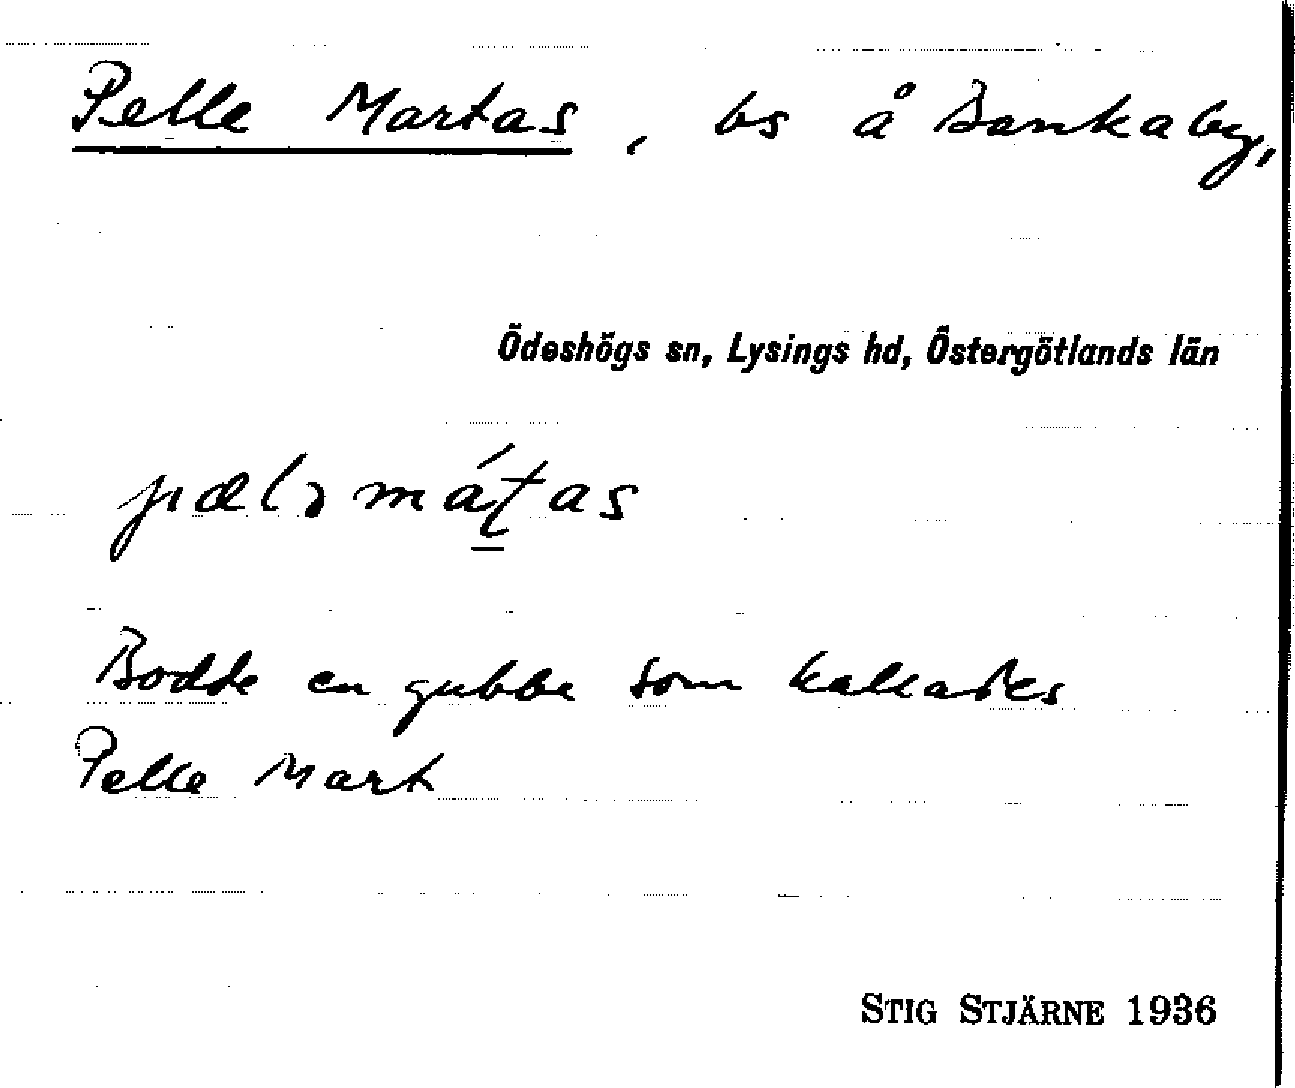 Pelle Martas, bs å Bankaby,
Ödeshögs sn, Lysings hd, Östergötlands län
pælə máʈas
Bodde en gubbe som kallades
Pelle Mart
STIG STJÄRNE 1936